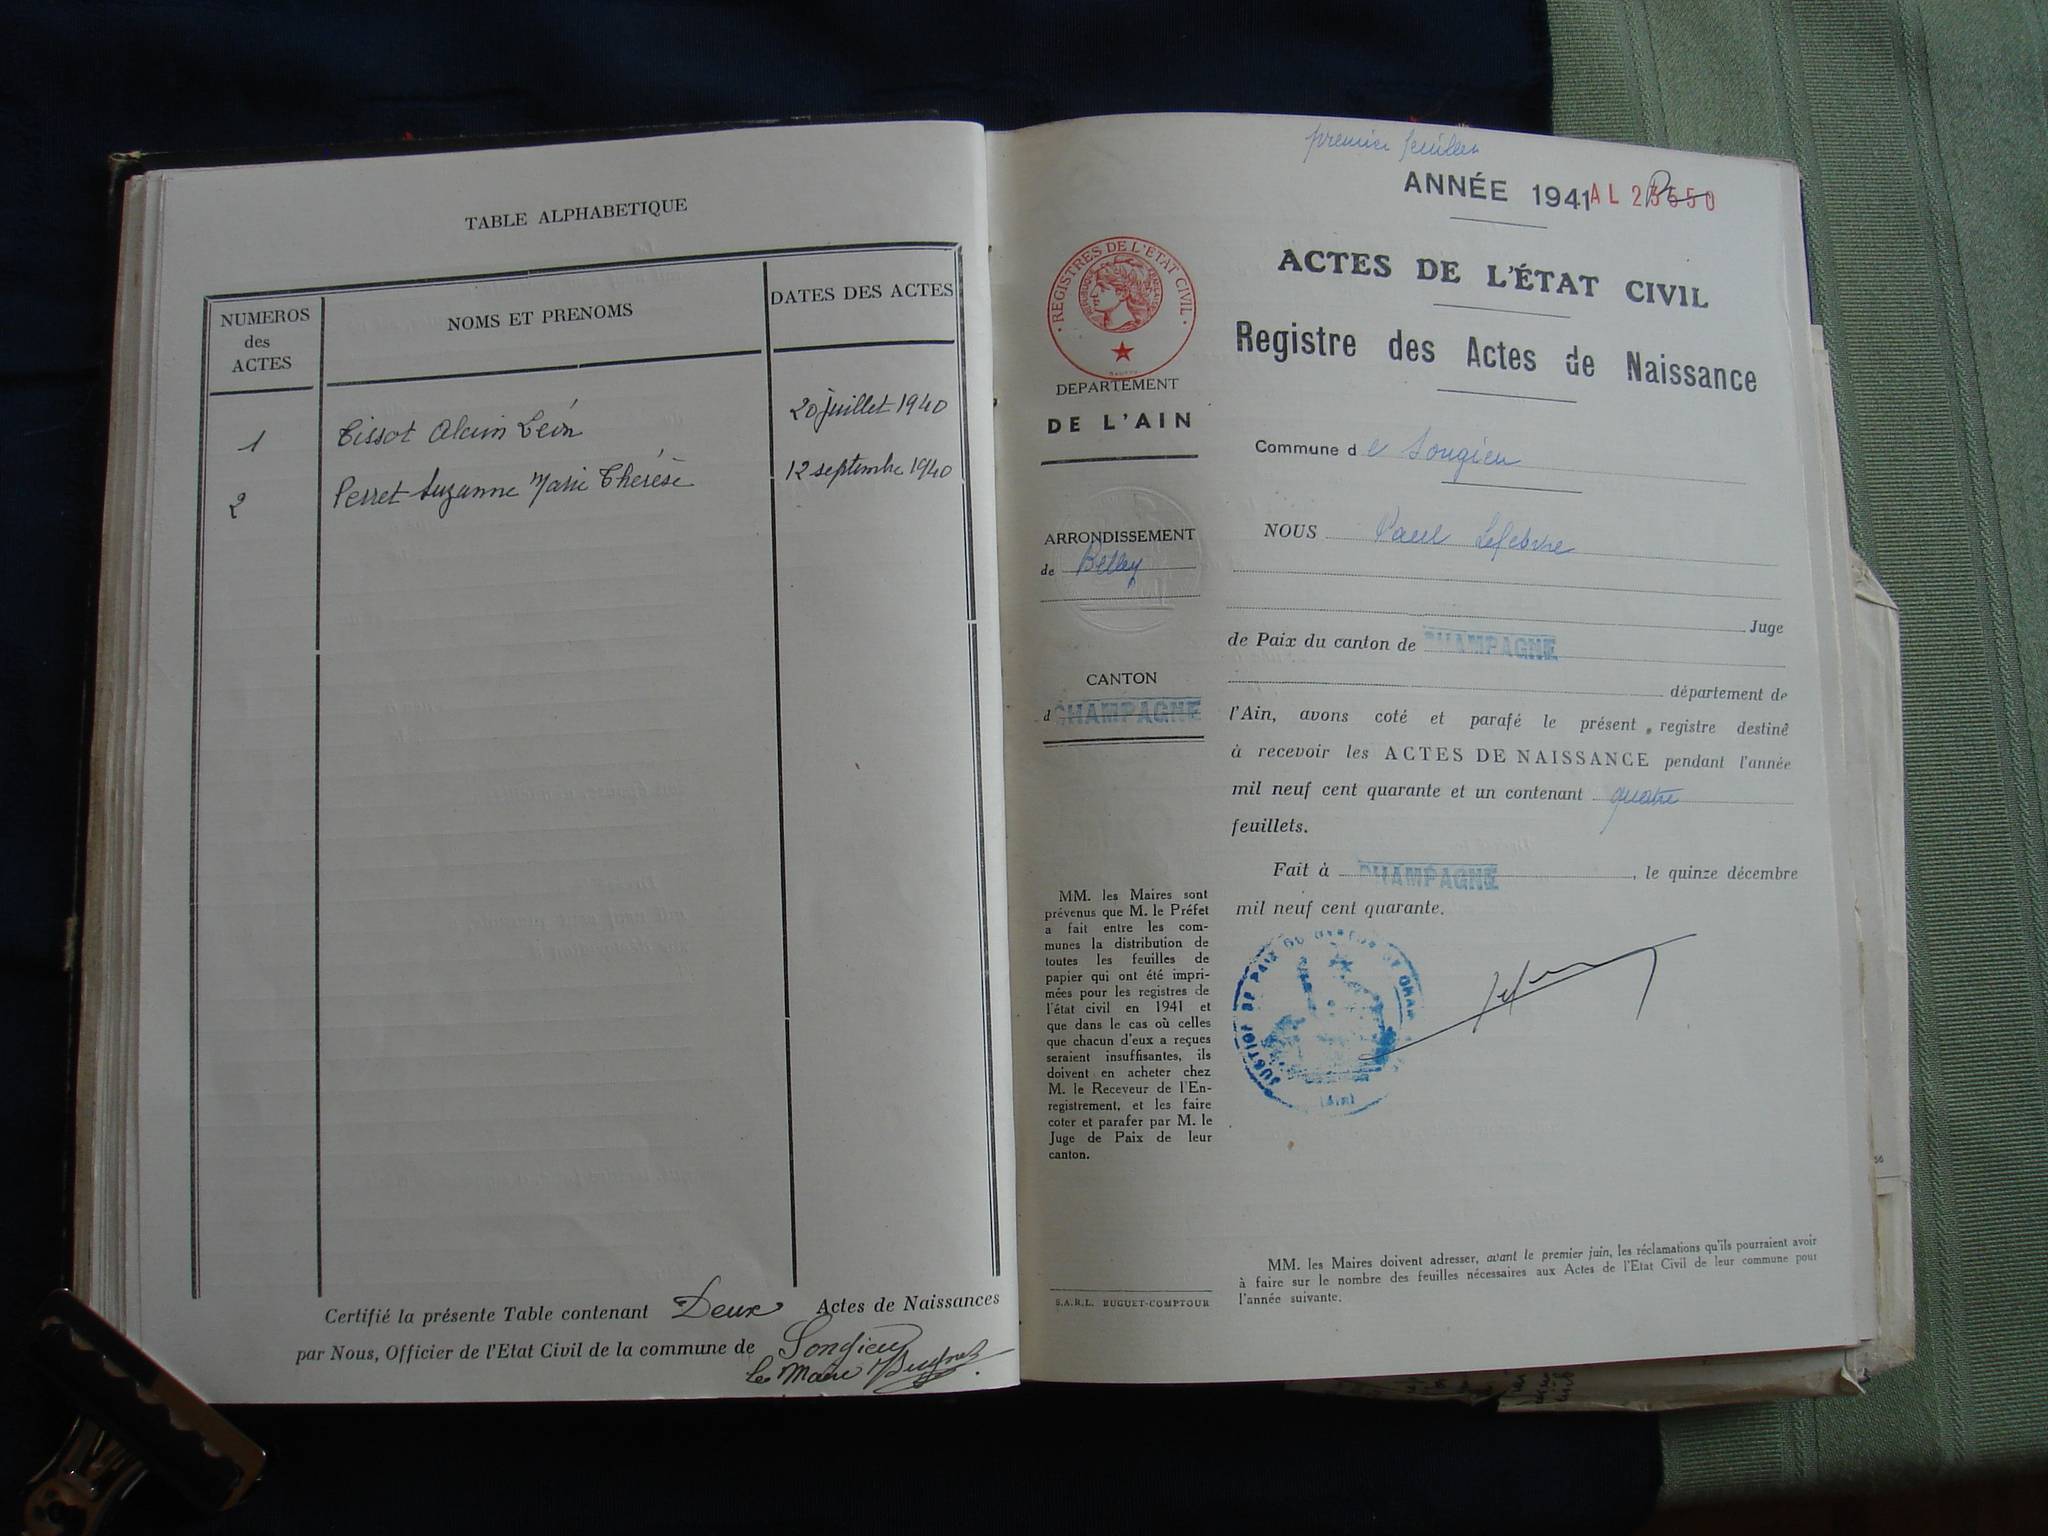 TABLE ALPHABETIQUE
NUMEROS
des
ACTES
NOMS ET PRENOMS
DATES DES ACTES
1 Tissot Alain Léon 20 juillet 1940
2 Perret Suzanne Marie Thérèse 12 septembre 1940
Certifié la présente Table contenant Deux Actes de Naissances
par Nous, Officier de l'Etat Civil de la commune de Songieu
Le Maire
premier feuillet
ANNÉE 1941 AL 23550
REGISTRES DE L'ÉTAT CIVIL
RÉPUBLIQUE FRANÇAISE
DEPARTEMENT
DE L'AIN
ARRONDISSEMENT
de Belley
CANTON
d CHAMPAGNE
MM. les Maires sont
prévenus que M. le Préfet
a fait entre les com-
munes la distribution de
toutes les feuilles de
papier qui ont été impri-
mées pour les registres de
l'état civil en 1941 et
que dans le cas où celles
que chacun d'eux a reçues
seraient insuffisantes, ils
doivent en acheter chez
M. le Receveur de l'En-
registrement, et les faire
coter et parafer par M. le
Juge de Paix de leur
canton.
S.A.R.L. BUGUET-COMPTOUR
ACTES DE L'ÉTAT CIVIL
Registre des Actes de Naissance
Commune de Songieu
NOUS Paul Lefebvre
Juge
de Paix du canton de CHAMPAGNE
département de
l'Ain, avons coté et parafé le présent registre destiné
à recevoir les ACTES DE NAISSANCE pendant l'année
mil neuf cent quarante et un contenant quatre
feuillets.
Fait à CHAMPAGNE, le quinze décembre
mil neuf cent quarante.
JUSTICE DE PAIX DU CANTON DE CHAM
(Ain)
MM. les Maires doivent adresser, avant le premier juin, les réclamations qu'ils pourraient avoir
à faire sur le nombre des feuilles nécessaires aux Actes de l'Etat Civil de leur commune pour
l'année suivante.
56